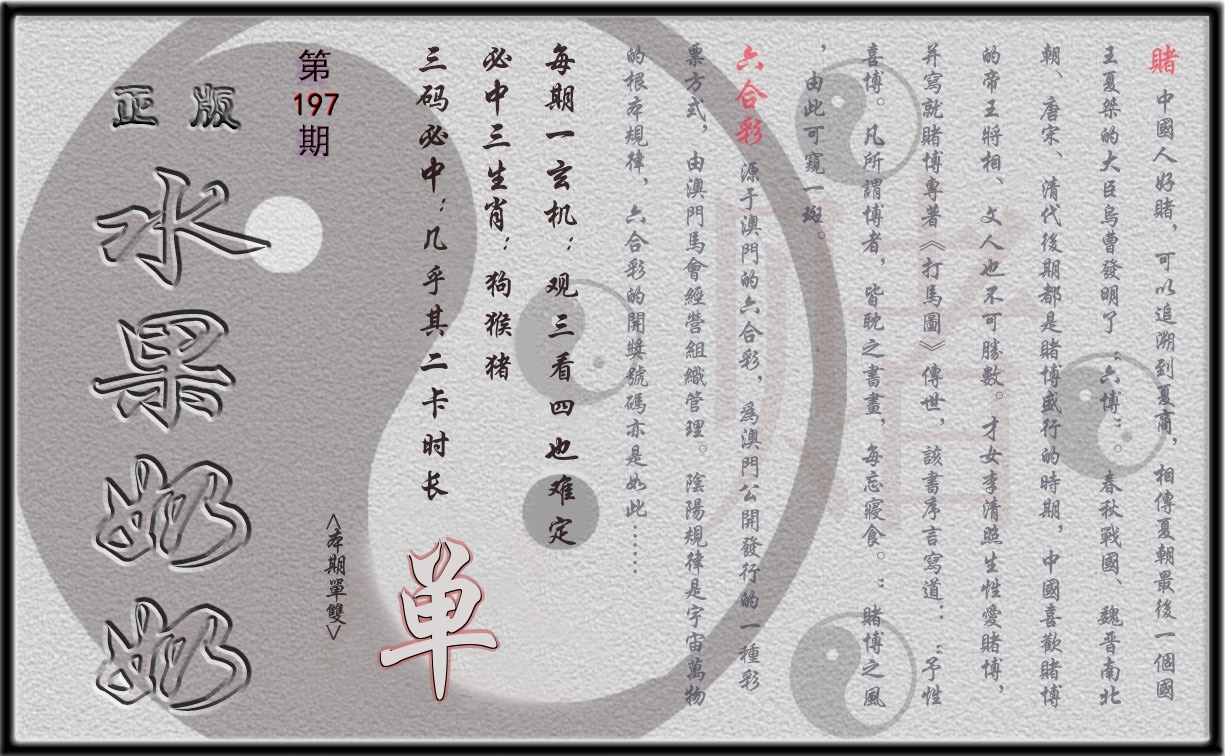 賭 中國人好賭，可以追溯到夏商，相傳夏朝最後一個國
王夏桀的大臣烏曹發明了“六博”。春秋戰國、魏晋南北
朝、唐宋、清代後期都是賭博盛行的時期，中國喜歡賭博
的帝王將相、文人也不可勝數。才女李清照生性愛賭博，
并寫就賭博專著《打馬圖》傳世，該書序言寫道：“予性
喜博。凡所謂博者，皆耽之書畫，每忘寢食。”賭博之風
，由此可窺一斑。
六合彩 源于澳門的六合彩，爲澳門公開發行的一種彩
票方式，由澳門馬會經營組織管理。陰陽規律是宇宙萬物
的根本規律，六合彩的開獎號碼亦是如此……
每期一玄机：观三看四也难定
必中三生肖：狗猴猪
三码必中：几乎其二卡时长
<本期單雙>
单
第
197
期
正版
水果奶奶
賭